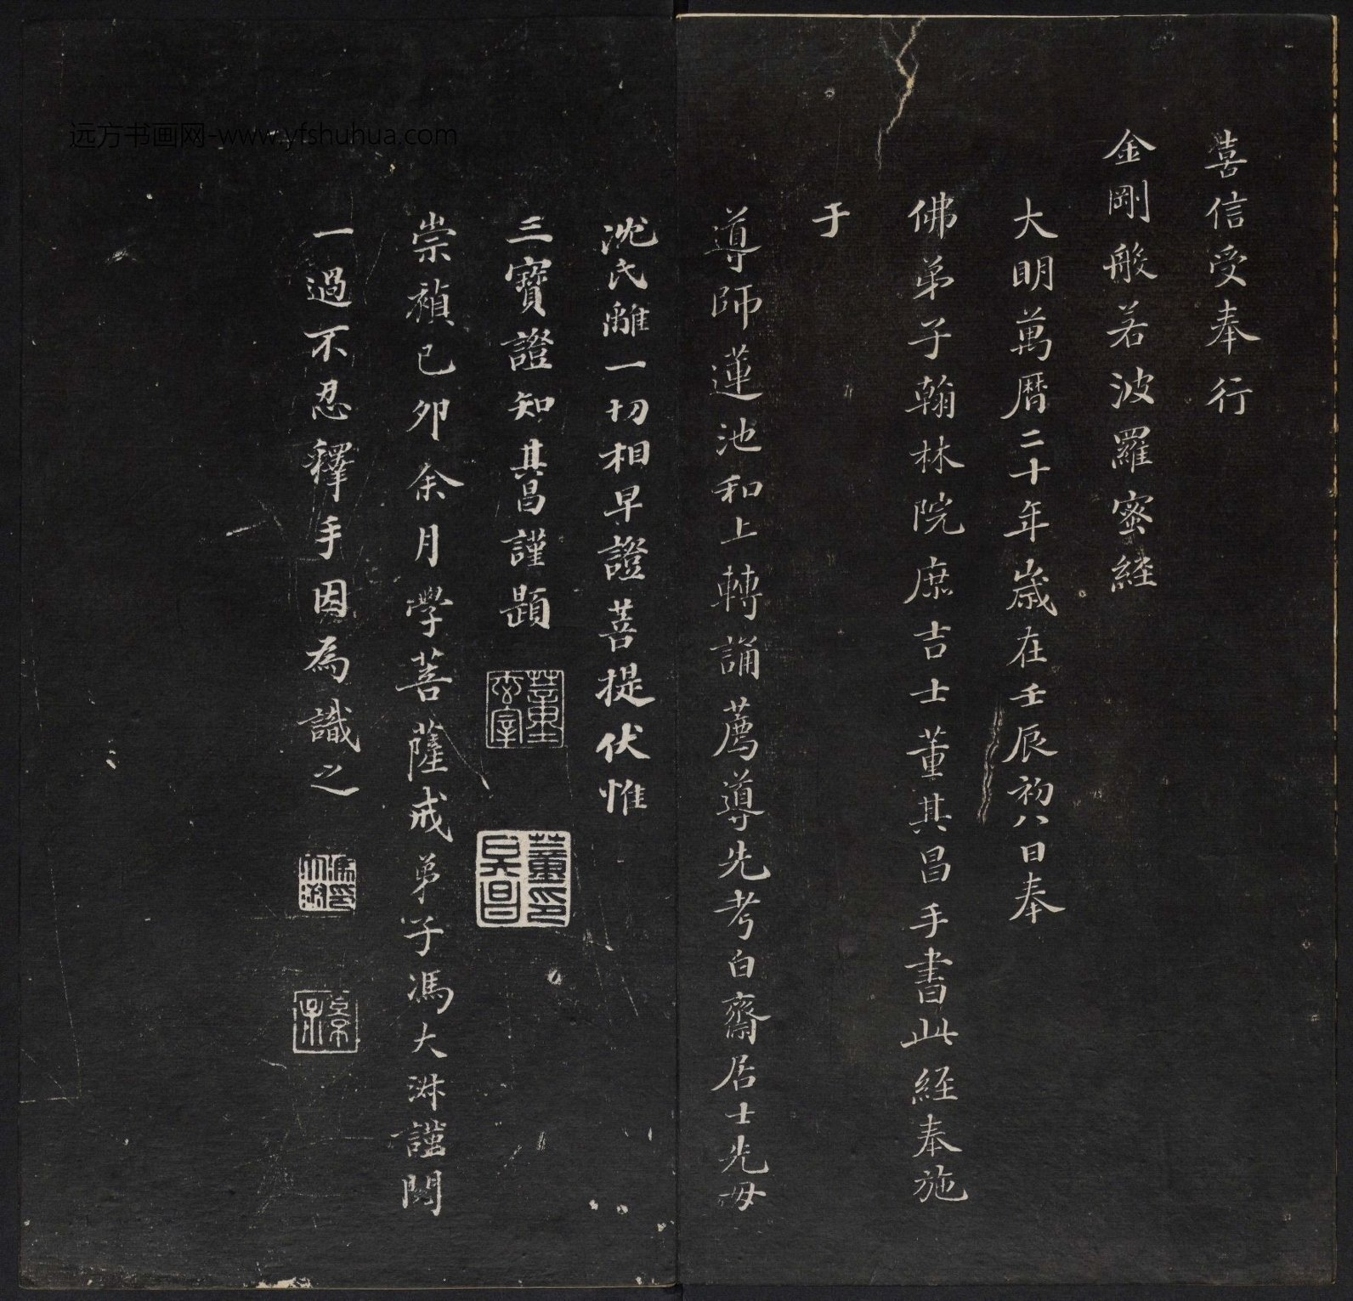 喜信受奉行
金剛般若波羅蜜經
大明萬曆二十年歲在壬辰初八日奉
佛弟子翰林院庶吉士董其昌手書此經奉施
于
導師蓮池和上轉誦薦導先考白齋居士先母
沈氏離一切相早證菩提伏惟
三寶證知其昌謹題
董玄宰
董其昌印
崇禎己卯余月學菩薩戒弟子馮大
謹閱
一過不忍釋手因為識之
远方书画网-www.yfshuhua.com